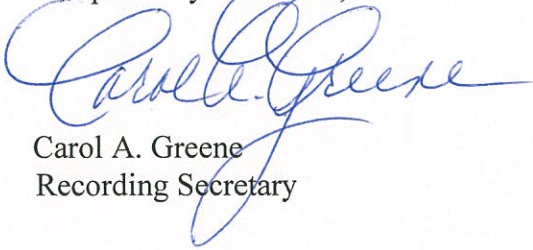 Carol A. Greene
Carol A. Greene
Recording Secretary